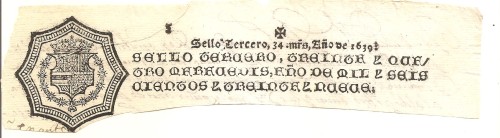 Sello Tercero, 34. mrs, Año de 1639.
SELLO TERCERO, TREINTA Y QUA/
TRO MARAVEDIS, AÑO DE MIL Y SEIS
CIENTOS Y TREINTA Y NUEVE.